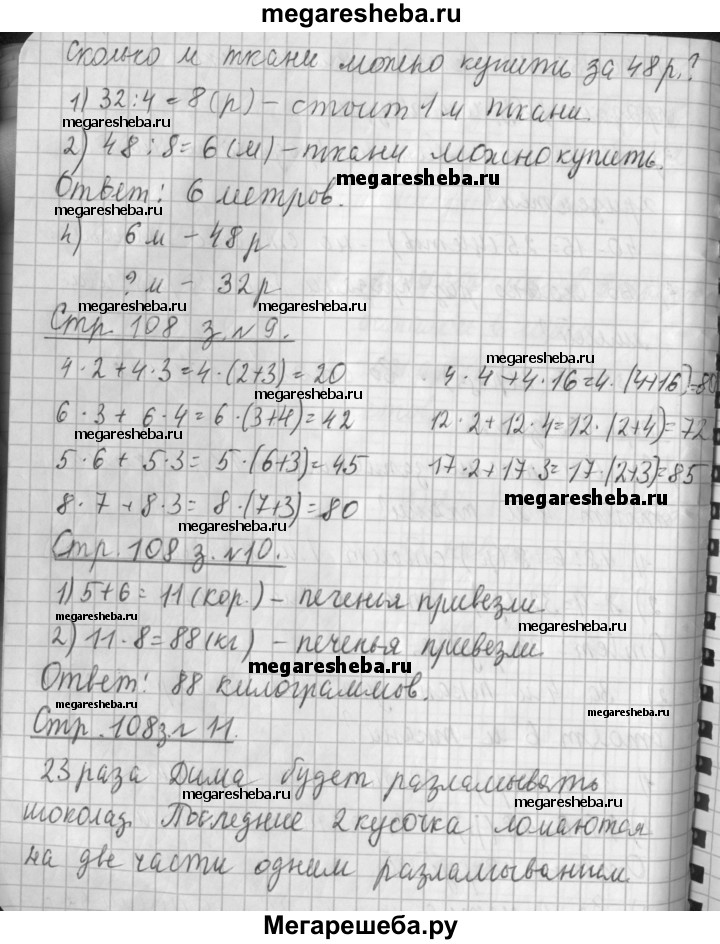 megaresheba.ru
Сколько м ткани можно купить за 48р.?
1) 32:4=8(р) – стоит 1м ткани.
megaresheba.ru
2) 48:8=6(м) – ткани можно купить.
megaresheba.ru
Ответ: 6 метров.
megaresheba.ru
4) 6м – 48р
?м – 32р
megaresheba.ru
Стр. 108 з. №9.
megaresheba.ru
4·2+4·3=4·(2+3)=20 4·4+4·16=4·(4+16)=80
6·3+6·4=6·(3+4)=42 12·2+12·4=12·(2+4)=72
megaresheba.ru
5·6+5·3=5·(6+3)=45 17·2+17·3=17·(2+3)=85
8·7+8·3=8·(7+3)=80
megaresheba.ru
megaresheba.ru
Стр. 108 з. №10.
1) 5+6=11(кор.) – печенья привезли.
megaresheba.ru
megaresheba.ru
2) 11·8=88(кг) – печенья привезли.
megaresheba.ru
megaresheba.ru
Ответ: 88 килограммов.
megaresheba.ru
Стр. 108 з. № 11.
23 раза Дима будет разламывать
megaresheba.ru
megaresheba.ru
шоколад. Последние 2 кусочка ломаются
на две части одним разламыванием.
Мегарешеба.ру